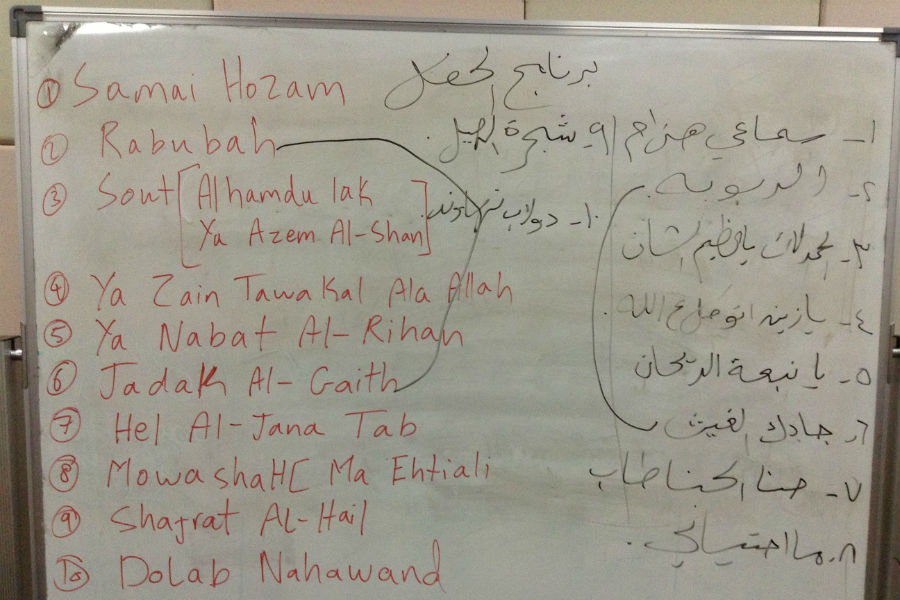 ① Samai Hozam
② Rabubah
③ Sout [Alhamdu lak
Ya Azem Al-Shan]
④ Ya Zain Tawakal Ala Allah
⑤ Ya Nabat Al-Rihan
⑥ Jadak Al-Gaith
⑦ Hel Al-Jana Tab
⑧ MowashaH[ Ma Ehtiali
⑨ Shajrat Al-Hail
⑩ Dolab Nahawand
برنامج الحفل
١- سماعي هزام
٢- الربوبه
٣- الحمدلك ياعظيم الشان
٤- يازين اتوكل ع الله
٥- يا نبعة الريحان
٦- جادك الغيث
٧- هنا الجنا طاب
٨- ما احتيالي
٩- شجرة الهيل
١٠- دولاب نهاوند